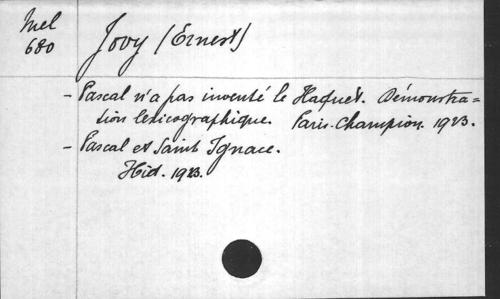 Mel
680
Jovy (Ernest)
- Pascal n'a pas inventé le Haquet. Démonstra=
tion lexicographique. Paris. Champion. 1923.
- Pascal et Saint Ignace.
Ibid. 1923.